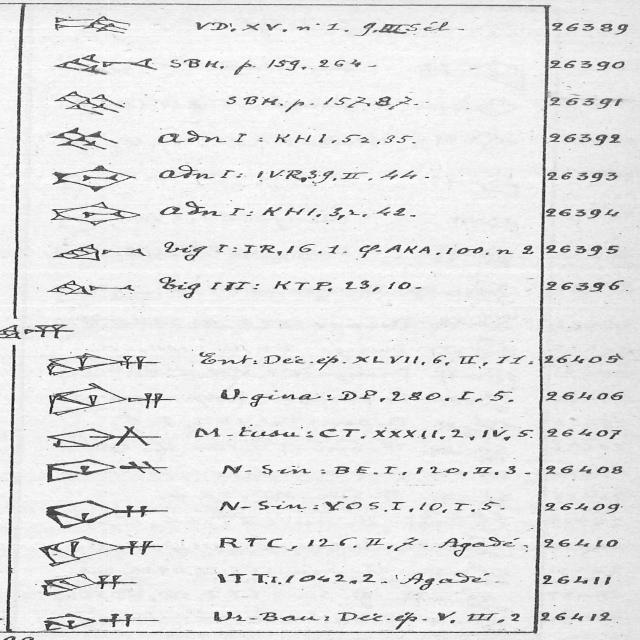 VD. XV. n° 1. 9. III Sél. 26389
SBH. p. 159. 264. 26390
SBH. p. 157. 87. 26391
Adn I : KHI. 52. 35. 26392
Adn I : IVR, 39. II. 44. 26393
Adn I : KHI. 3, 2. 42. 26394
Tig I : IR, 16. 1. Cf. AKA. 100. n 2 26395
Tig III : KTP. 23, 10. 26396
Ent : Déc. ép. XLVII, 6, II, 11. 26405
U-gina : DP, 280. I, 5. 26406
M-tusu : CT. XXXII, 2, IV, 5 26407
N-Sin : BE. I, 120, II. 3. 26408
N-Sin : YOS. I, 10, I, 5. 26409
RTC, 126. II, 7. Agadé. 26410
ITT I, 1042, 2. Agadé. 26411
Ur-Bau : Déc. ép. V. III, 2 26412